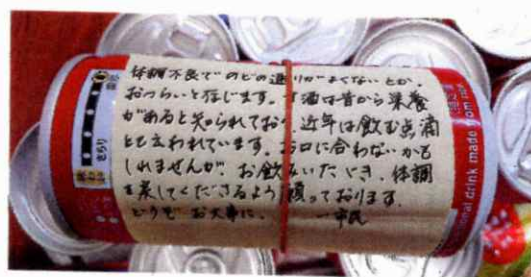 体調不良でのどの通りがよくないとか、
おつらいと存じます。甘酒は昔から栄養
があると知られており、近年は飲む点滴
とも言われています。お口に合わないかも
しれませんが、お飲みいただき、体調
を戻してくださるよう願っております。
どうぞお大事に。 一市民
きらり
onal drink made from rice